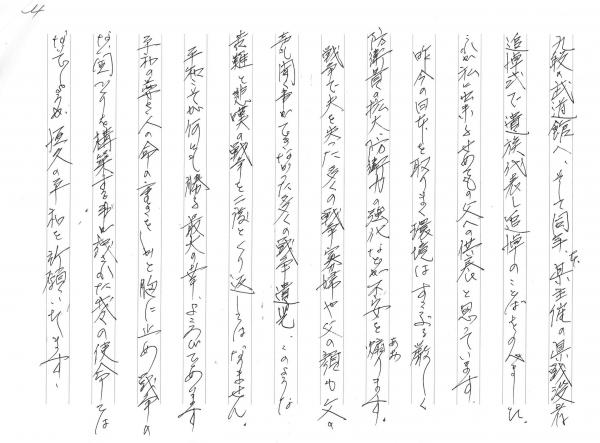 九段の武道館へ、そして同年、県主催の県戦没者
追悼式で遺族代表し追悼のことばをのべました。
これが私に出来るせめてもの父への供養と思っています。
昨今の日本を取りまく環境はすこぶる厳しく
防衛費の拡大、防衛力の強化などが不安を煽ります。
あお
戦争で夫を失った多くの戦争寡婦や父の顔も父の
声も聞く事ができなかった多くの戦争遺児、このような
苦難と悲嘆の戦争を二度とくり返してはなりません。
平和こそが何にも勝る最大の幸、よろこびであります
平和の尊さ人の命の重さをしかと胸に止め戦争の
ない国づくりを構築する事が残された我々の使命では
ないでしょうか。恒久の平和を祈願いたします。